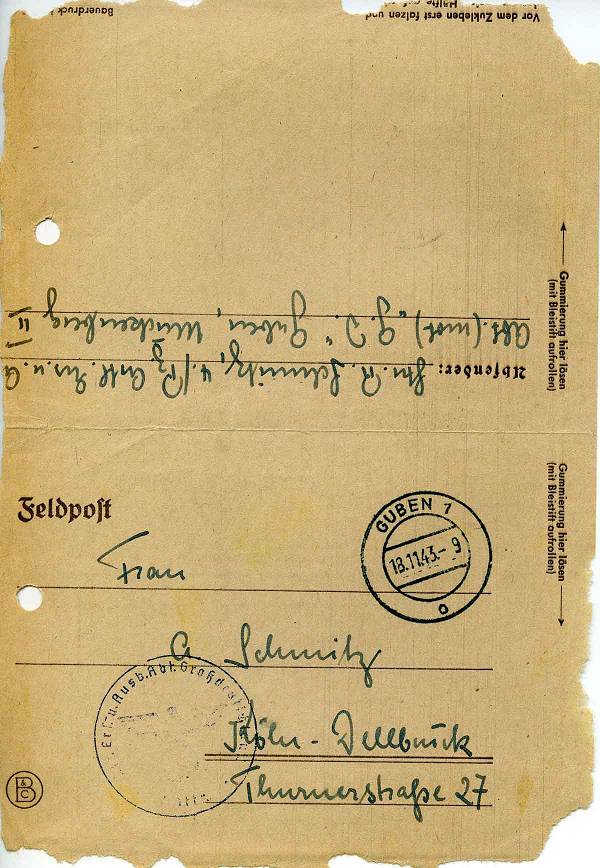 Bauerdruck
Vor dem Zukleben erst falzen und
Gummierung hier lösen
(mit Bleistift aufrollen)
Absender: Gfr. R. Schmitz, 4./Pz. Artl. Ers. u. A
Abt. (mot) „G. D." Guben, Windenberg II
Feldpost
Gummierung hier lösen
(mit Bleistift aufrollen)
GUBEN 1
18.11.43.- 9
o
Frau
A Schmitz
Ers.-u. Ausb. Abt. Großdeutschl
Köln - Dellbrück
Thurnerstraße 27
B & C